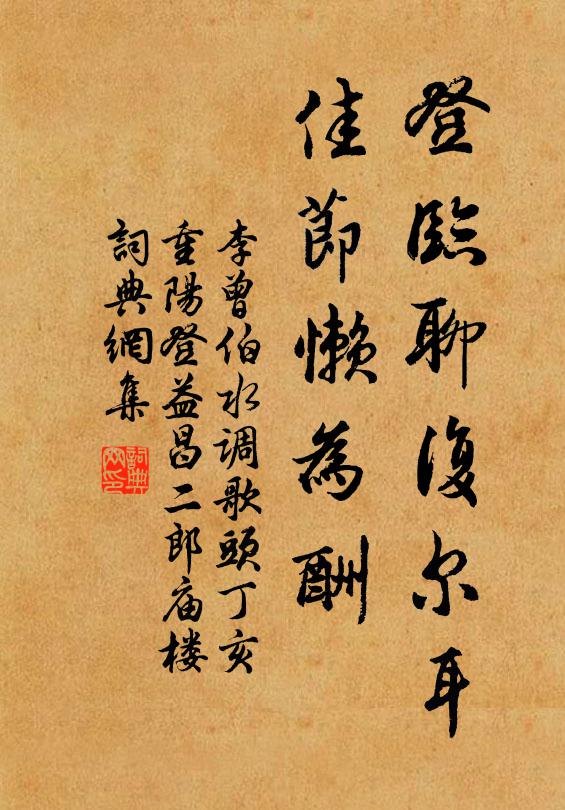 登臨聊復尔耳
佳節懶為酬
李曾伯水调歌頭丁亥
重陽登益昌二郎庙楼
詞典網集
詞典网印